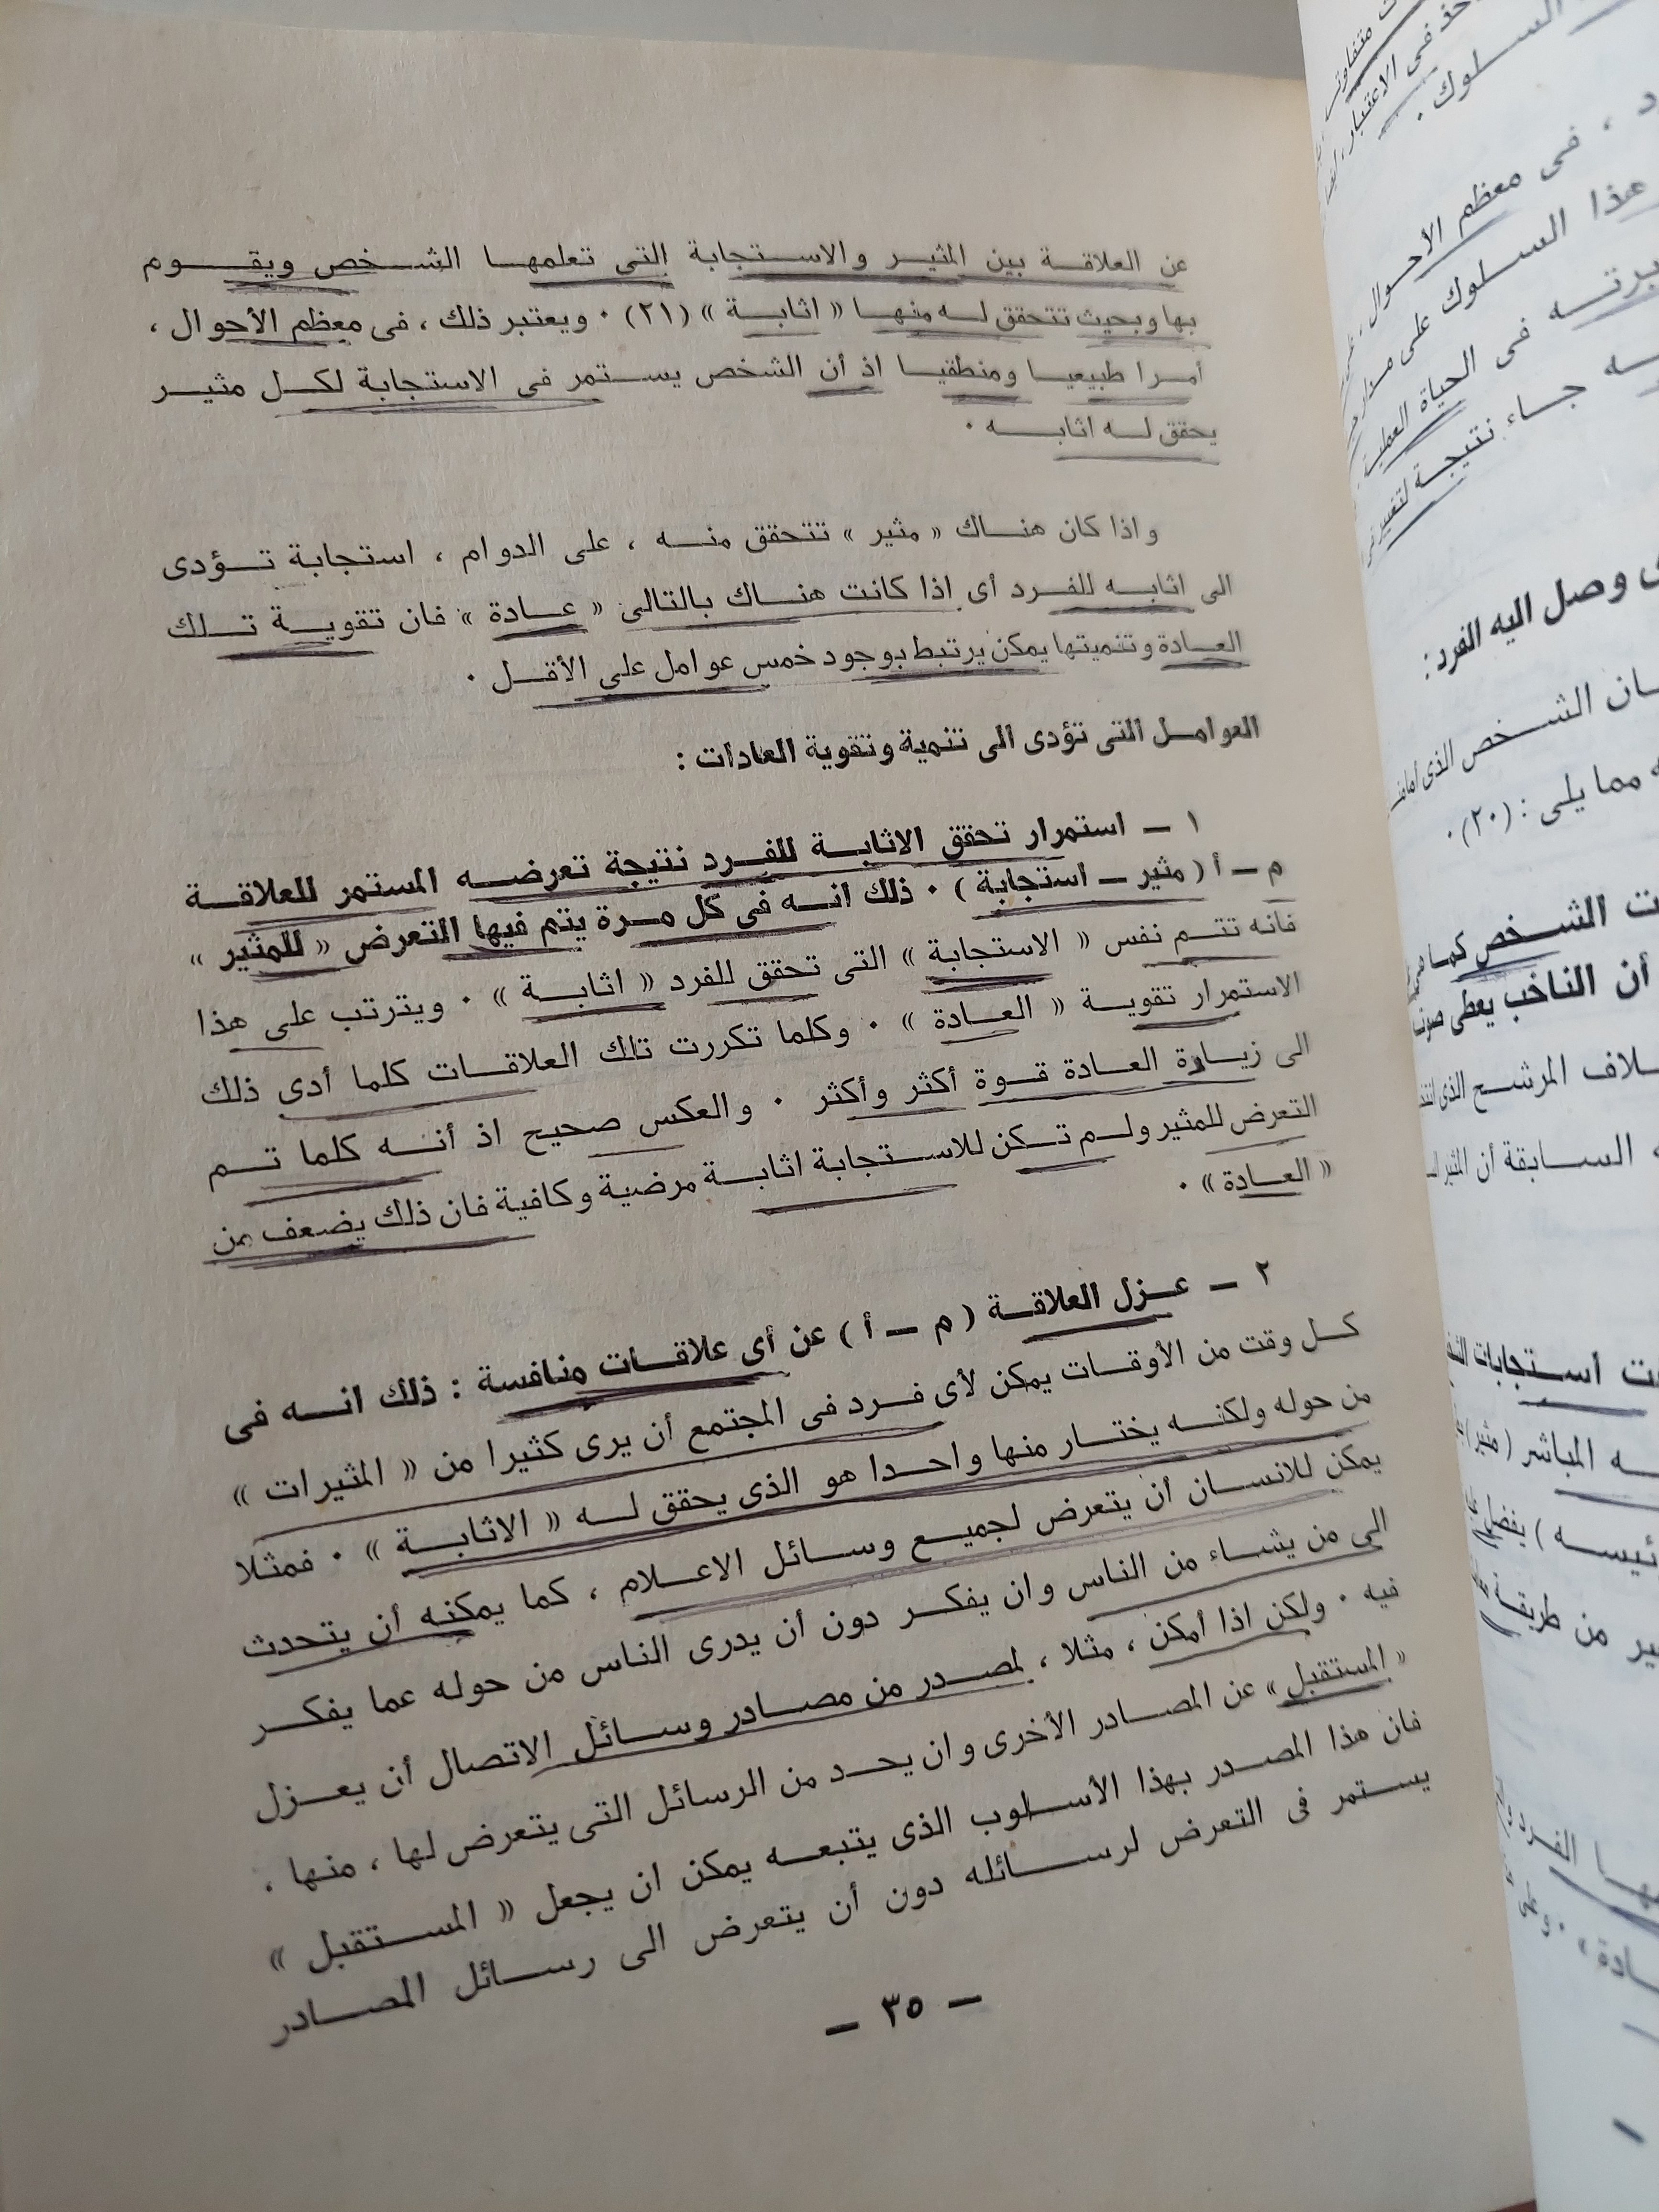 عن العلاقة بين المثير والاستجابة التى تعلمها الشخص ويقوم
بها وبحيث تتحقق له منها « اثابة » (٢١) ٠ ويعتبر ذلك ، فى معظم الأحوال ،
أمرا طبيعيا ومنطقيا اذ أن الشخص يستمر فى الاستجابة لكل مثير
يحقق له اثابه ٠
واذا كان هناك « مثير » تتحقق منه ، على الدوام ، استجابة تؤدى
الى اثابه للفرد أى اذا كانت هناك بالتالى « عادة » فان تقوية تلك
العادة وتنميتها يمكن يرتبط بوجود خمس عوامل على الأقل ٠
العوامل التى تؤدى الى تنمية وتقوية العادات :
١ — استمرار تحقق الاثابة للفرد نتيجة تعرضه المستمر للعلاقة
م — أ ( مثير — استجابة ) ٠ ذلك انه فى كل مرة يتم فيها التعرض « للمثير »
فانه تتم نفس « الاستجابة » التى تحقق للفرد « اثابة » ٠ ويترتب على هذا
الاستمرار تقوية « العادة » ٠ وكلما تكررت تلك العلاقات كلما أدى ذلك
الى زيادة العادة قوة أكثر وأكثر ٠ والعكس صحيح اذ أنه كلما تم
التعرض للمثير ولم تكن للاستجابة اثابة مرضية وكافية فان ذلك يضعف من
« العادة » ٠
٢ — عزل العلاقة ( م — أ ) عن أى علاقات منافسة : ذلك انه فى
كل وقت من الأوقات يمكن لأى فرد فى المجتمع أن يرى كثيرا من « المثيرات »
من حوله ولكنه يختار منها واحدا هو الذى يحقق له « الاثابة » ٠ فمثلا
يمكن للانسان أن يتعرض لجميع وسائل الاعلام ، كما يمكنه أن يتحدث
الى من يشاء من الناس وان يفكر دون أن يدرى الناس من حوله عما يفكر
فيه ٠ ولكن اذا أمكن ، مثلا ، لمصدر من مصادر وسائل الاتصال أن يعزل
« المستقبل » عن المصادر الأخرى وان يحد من الرسائل التى يتعرض لها ، منها ،
فان هذا المصدر بهذا الأسلوب الذى يتبعه يمكن ان يجعل « المستقبل »
يستمر فى التعرض لرسائله دون أن يتعرض الى رسائل المصادر
— ٣٥ —
السلوك ٠
، فى معظم الأحوال ،
هذا السلوك على مدار
فى الحياة العملية
جاء نتيجة
وصل اليه الفرد :
الشخص الذى
مما يلى : (٢٠) ٠
الشخص كما
أن الناخب يعطى
المرشح الذى
السابقة أن المثير
استجابات
المباشر ( مثير )
) يفضل
من طريقة
الفرد